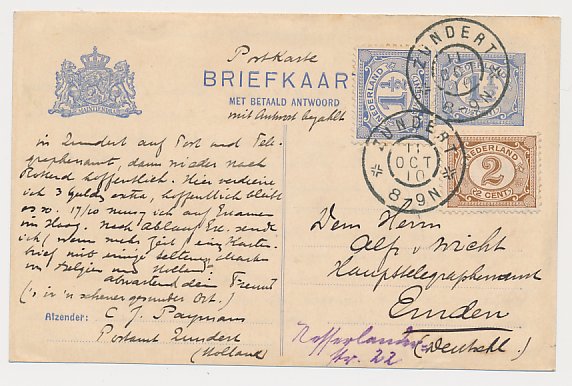 Postkarte
BRIEFKAART
MET BETAALD ANTWOORD
mit Antwort bezahlt
in Zundert auf Post und Tele-
graphenamt, dann wieder nach
hoffentlich. Hier verdiene
ich 3 Gulden extra, hoffentlich bleibt
es so. 17/10 muss ich auf Examen
im Haag. Nach Ablauf sende
ich, wenn mehr Zeit, ein Karten-
brief mit einige seltene Marken
von Belgien und Holland.
abwartend dein Freund
('s is 'n schener gesunder Ort.)
Afzender: C. J. Paymans
Postamt Zundert
(Holland)
NEDERLAND
1½
ZUNDERT
11
OCT
10
8-9N
ZUNDERT
11
OCT
10
8-9N
NEDERLAND
2
(2 CENT)
Dem Herrn
Alf. v. Wicht
Haupttelegraphenamt
Emden
(Deutschl.)
Nesserlander-
str. 22